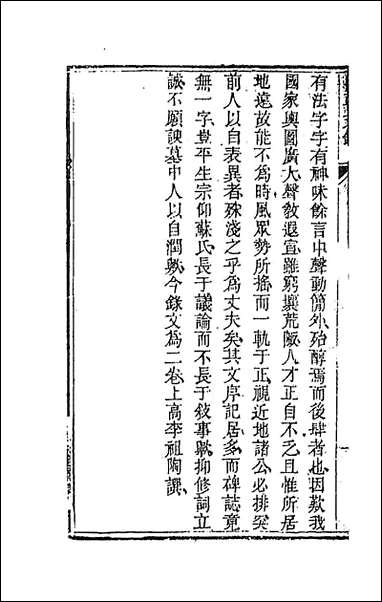 有法字字有神味餘言中聲動簡外殆醇焉而後肆者也因歎我
國家輿圖廣大聲敎遐宣雖窮壤荒陬人才正自不乏且惟所居
地遠故能不爲時風眾勢所搖而一軌于正視近地諸公必排突
前人以自表異者殊淺之乎爲丈夫矣其文序記居多而碑誌竟
無一字豈平生宗仰蘇氏長于議論而不長于敘事歟抑修詞立
誠不願諛墓中人以自潤歟今錄文爲二卷上高李祖陶譔